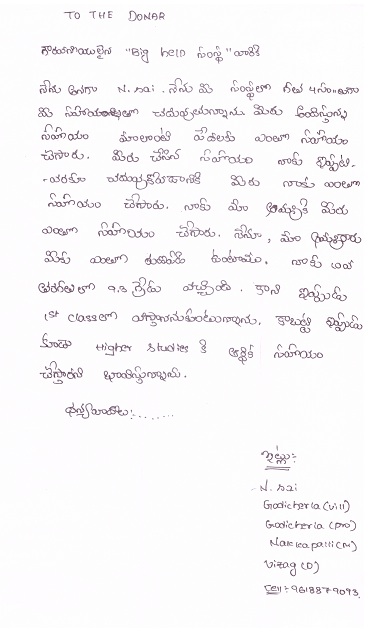 TO THE DONAR
గౌరవనీయులైన "Big help సంస్థ" వారికి
నేను అనగా N. Sai. నేను మీ సంస్థలో గత 4సం||లుగా
మీ సహాయంతో చదువుతున్నాను. మీరు అందిస్తున్న
సహాయం మాలాంటి పేదలకు ఎంతో సహాయం
చేసారు. మీరు చేసిన సహాయం నాకు ఇప్పటి-
-వరకూ చదువుకోవడానికి మీరు నాకు ఎంతగా
సహాయం చేసారు. నాకు మా అమ్మకి మీరు
ఎంతగా సహాయం చేసారు. నేను, మా
మీకు ఎంతగా ఉంటాము. నాకు 10వ
తరగతిలో 9.3 గ్రేడు వచ్చింది. కాని ఇప్పుడు
1st classలో వస్తాననుకుంటున్నాను. కాబట్టి ఇప్పుడు
కూడా Higher Studies కి ఆర్థిక సహాయం
చేస్తారని భావిస్తున్నాను.
ధన్యవాదాలు:.......
ఇట్లు:-
N. Sai
Godicherla (vill)
Godicherla (po)
Nakkapalli (M)
Vizag (D)
Cell:- 9618879093.